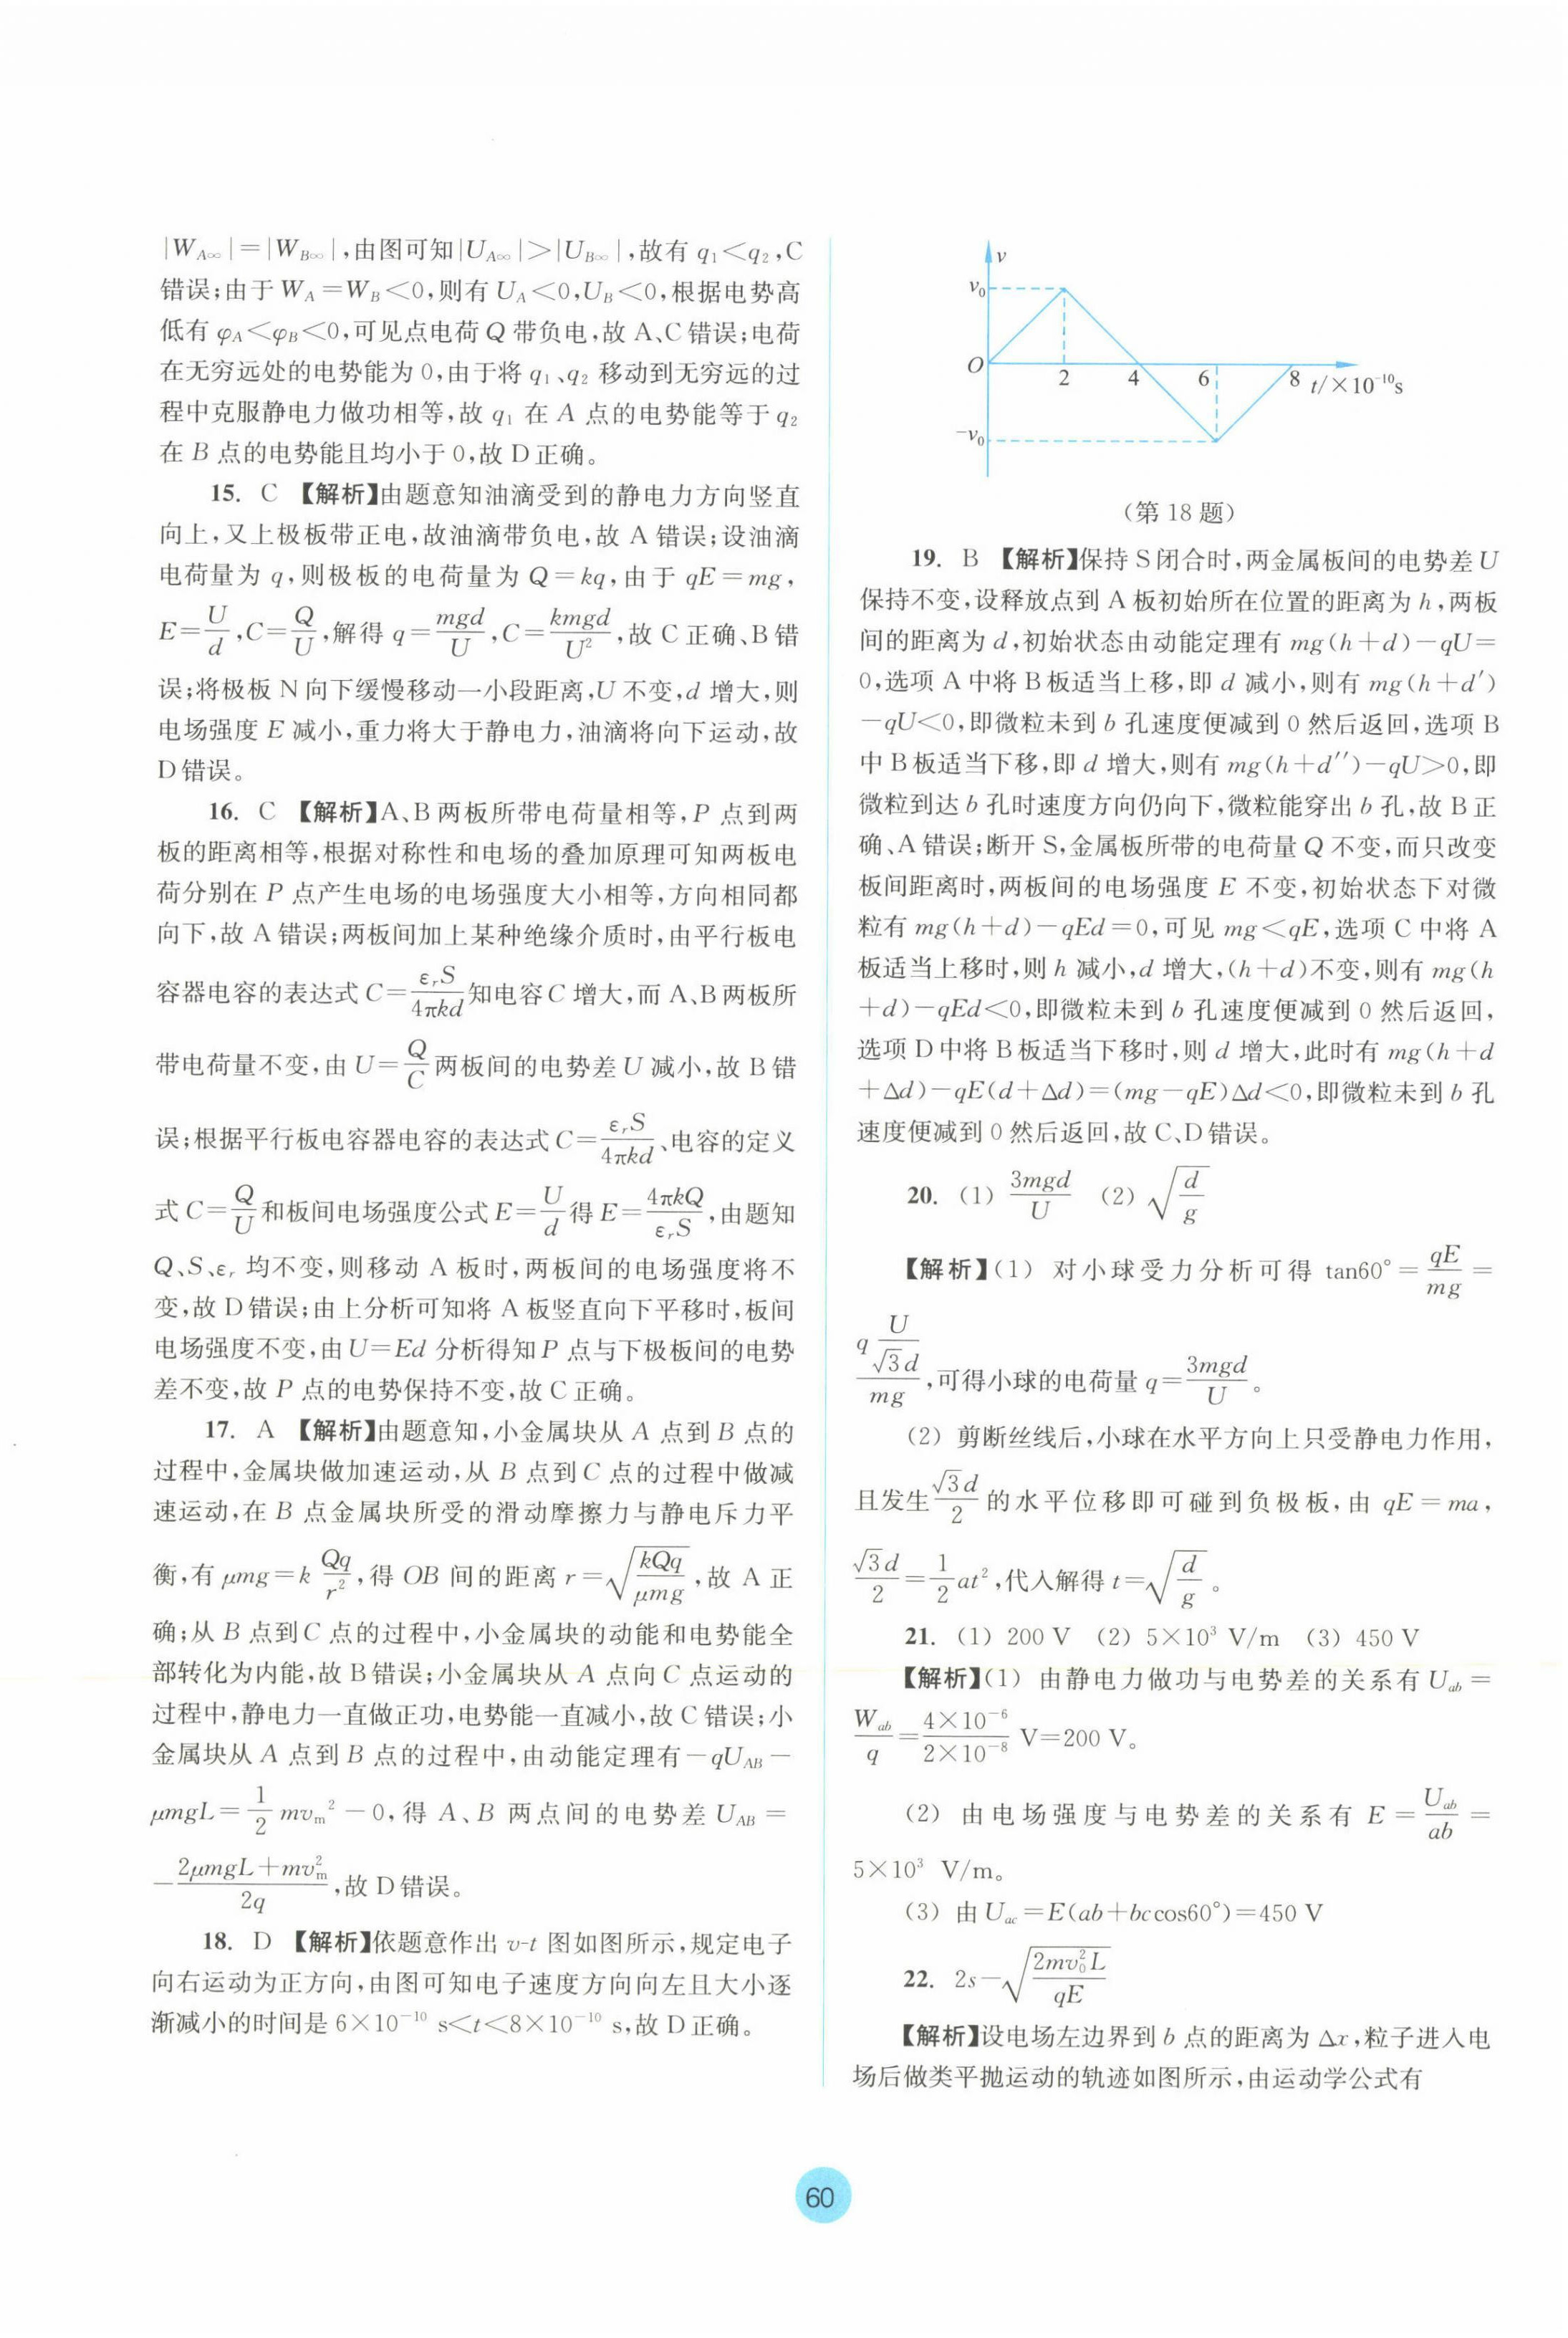 |W_{A∞}|=|W_{B∞}|,由图可知|U_{A∞}|>|U_{B∞}|,故有 q₁<q₂,C
错误;由于 W_A=W_B<0,则有 U_A<0,U_B<0,根据电势高
低有 φ_A<φ_B<0,可见点电荷 Q 带负电,故 A、C 错误;电荷
在无穷远处的电势能为 0,由于将 q₁、q₂ 移动到无穷远的过
程中克服静电力做功相等,故 q₁ 在 A 点的电势能等于 q₂
在 B 点的电势能且均小于 0,故 D 正确。
15. C 【解析】由题意知油滴受到的静电力方向竖直
向上,又上极板带正电,故油滴带负电,故 A 错误;设油滴
电荷量为 q,则极板的电荷量为 Q=kq,由于 qE=mg,
E=U/d,C=Q/U,解得 q=mgd/U,C=kmgd/U²,故 C 正确、B 错
误;将极板 N 向下缓慢移动一小段距离,U 不变,d 增大,则
电场强度 E 减小,重力将大于静电力,油滴将向下运动,故
D 错误。
16. C 【解析】A、B 两板所带电荷量相等,P 点到两
板的距离相等,根据对称性和电场的叠加原理可知两板电
荷分别在 P 点产生电场的电场强度大小相等,方向相同都
向下,故 A 错误;两板间加上某种绝缘介质时,由平行板电
容器电容的表达式 C=ε_rS/4πkd 知电容 C 增大,而 A、B 两板所
带电荷量不变,由 U=Q/C 两板间的电势差 U 减小,故 B 错
误;根据平行板电容器电容的表达式 C=ε_rS/4πkd、电容的定义
式 C=Q/U 和板间电场强度公式 E=U/d 得 E=4πkQ/ε_rS,由题知
Q、S、ε_r 均不变,则移动 A 板时,两板间的电场强度将不
变,故 D 错误;由上分析可知将 A 板竖直向下平移时,板间
电场强度不变,由 U=Ed 分析得知 P 点与下极板间的电势
差不变,故 P 点的电势保持不变,故 C 正确。
17. A 【解析】由题意知,小金属块从 A 点到 B 点的
过程中,金属块做加速运动,从 B 点到 C 点的过程中做减
速运动,在 B 点金属块所受的滑动摩擦力与静电斥力平
衡,有 μmg=k Qq/r²,得 OB 间的距离 r=√(kQq/μmg),故 A 正
确;从 B 点到 C 点的过程中,小金属块的动能和电势能全
部转化为内能,故 B 错误;小金属块从 A 点向 C 点运动的
过程中,静电力一直做正功,电势能一直减小,故 C 错误;小
金属块从 A 点到 B 点的过程中,由动能定理有-qU_{AB}-
μmgL=1/2 mv_m²-0,得 A、B 两点间的电势差 U_{AB}=
-(2μmgL+mv_m²)/2q,故 D 错误。
18. D 【解析】依题意作出 v-t 图如图所示,规定电子
向右运动为正方向,由图可知电子速度方向向左且大小逐
渐减小的时间是 6×10⁻¹⁰ s<t<8×10⁻¹⁰ s,故 D 正确。
v
v₀
O
2 4 6 8 t/×10⁻¹⁰s
-v₀
(第 18 题)
19. B 【解析】保持 S 闭合时,两金属板间的电势差 U
保持不变,设释放点到 A 板初始所在位置的距离为 h,两板
间的距离为 d,初始状态由动能定理有 mg(h+d)-qU=
0,选项 A 中将 B 板适当上移,即 d 减小,则有 mg(h+d′)
-qU<0,即微粒未到 b 孔速度便减到 0 然后返回,选项 B
中 B 板适当下移,即 d 增大,则有 mg(h+d″)-qU>0,即
微粒到达 b 孔时速度方向仍向下,微粒能穿出 b 孔,故 B 正
确、A 错误;断开 S,金属板所带的电荷量 Q 不变,而只改变
板间距离时,两板间的电场强度 E 不变,初始状态下对微
粒有 mg(h+d)-qEd=0,可见 mg<qE,选项 C 中将 A
板适当上移时,则 h 减小,d 增大,(h+d)不变,则有 mg(h
+d)-qEd<0,即微粒未到 b 孔速度便减到 0 然后返回,
选项 D 中将 B 板适当下移时,则 d 增大,此时有 mg(h+d
+Δd)-qE(d+Δd)=(mg-qE)Δd<0,即微粒未到 b 孔
速度便减到 0 然后返回,故 C、D 错误。
20. (1) 3mgd/U (2) √(d/g)
【解析】(1) 对小球受力分析可得 tan60°=qE/mg=
q(U/√3d)/mg,可得小球的电荷量 q=3mgd/U。
(2) 剪断丝线后,小球在水平方向上只受静电力作用,
且发生 √3d/2 的水平位移即可碰到负极板,由 qE=ma,
√3d/2=1/2 at²,代入解得 t=√(d/g)。
21. (1) 200 V (2) 5×10³ V/m (3) 450 V
【解析】(1) 由静电力做功与电势差的关系有 U_{ab}=
W_{ab}/q=(4×10⁻⁶)/(2×10⁻⁸) V=200 V。
(2) 由电场强度与电势差的关系有 E=U_{ab}/ab=
5×10³ V/m。
(3) 由 U_{ac}=E(ab+bccos60°)=450 V
22. 2s-√(2mv₀²L/qE)
【解析】设电场左边界到 b 点的距离为 Δx,粒子进入电
场后做类平抛运动的轨迹如图所示,由运动学公式有
60